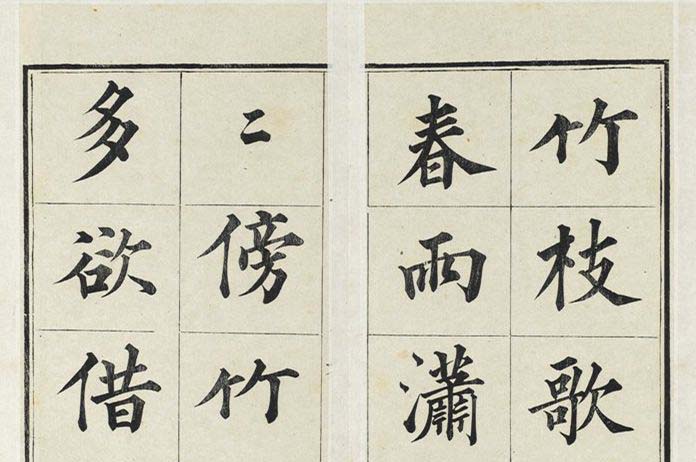 竹枝歌
春雨瀟
〻傍竹
多欲借